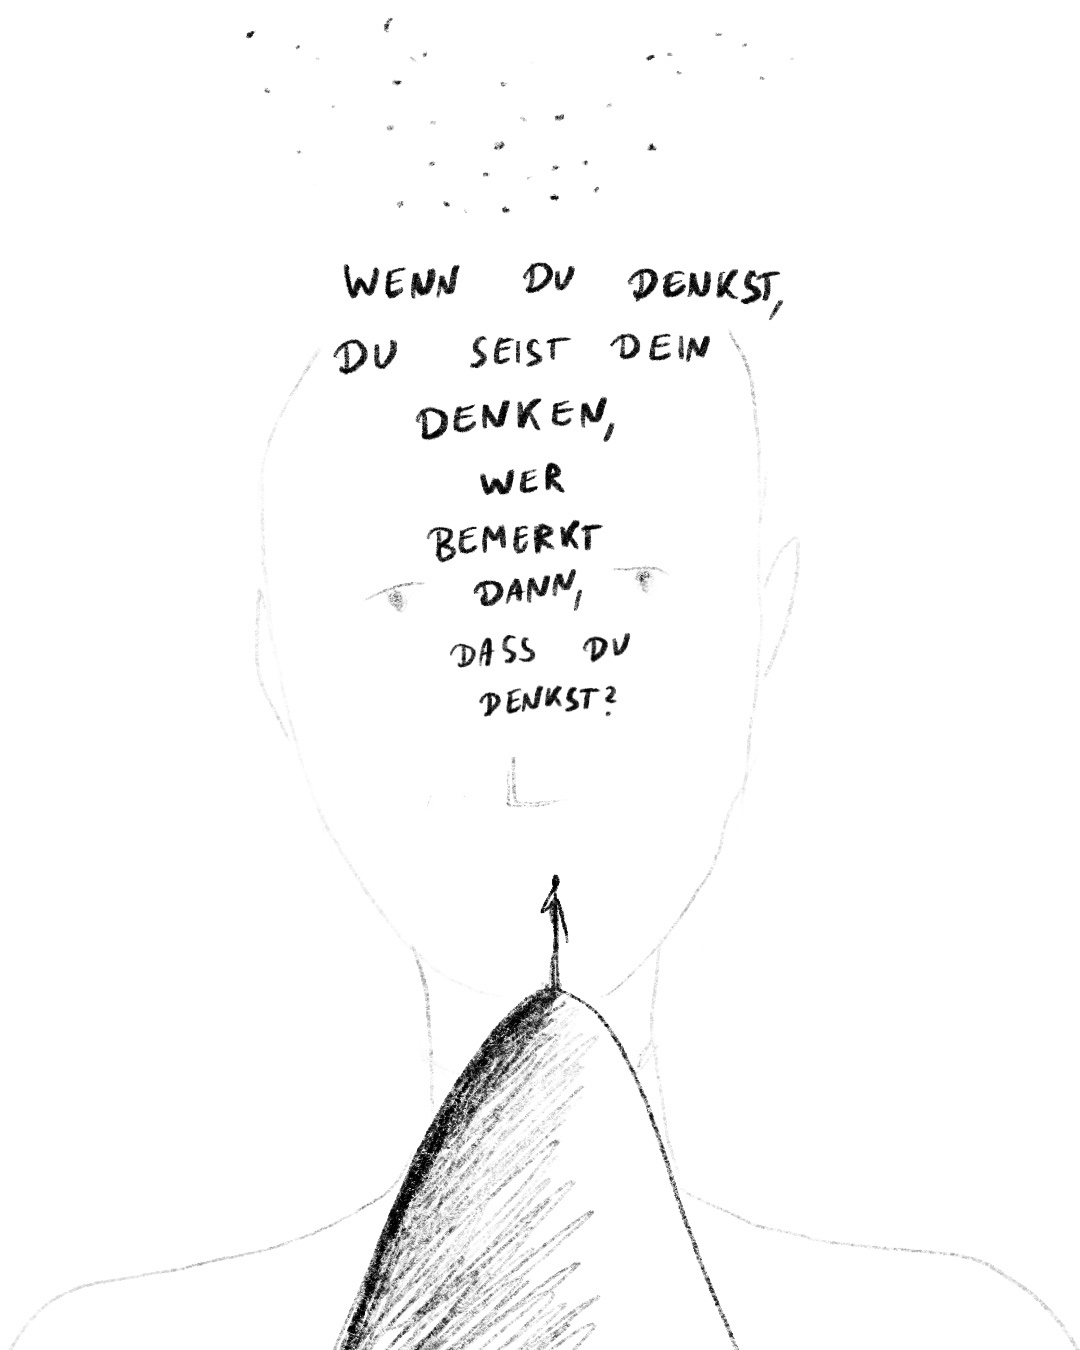 WENN DU DENKST,
DU SEIST DEIN
DENKEN,
WER
BEMERKT
DANN,
DASS DU
DENKST?